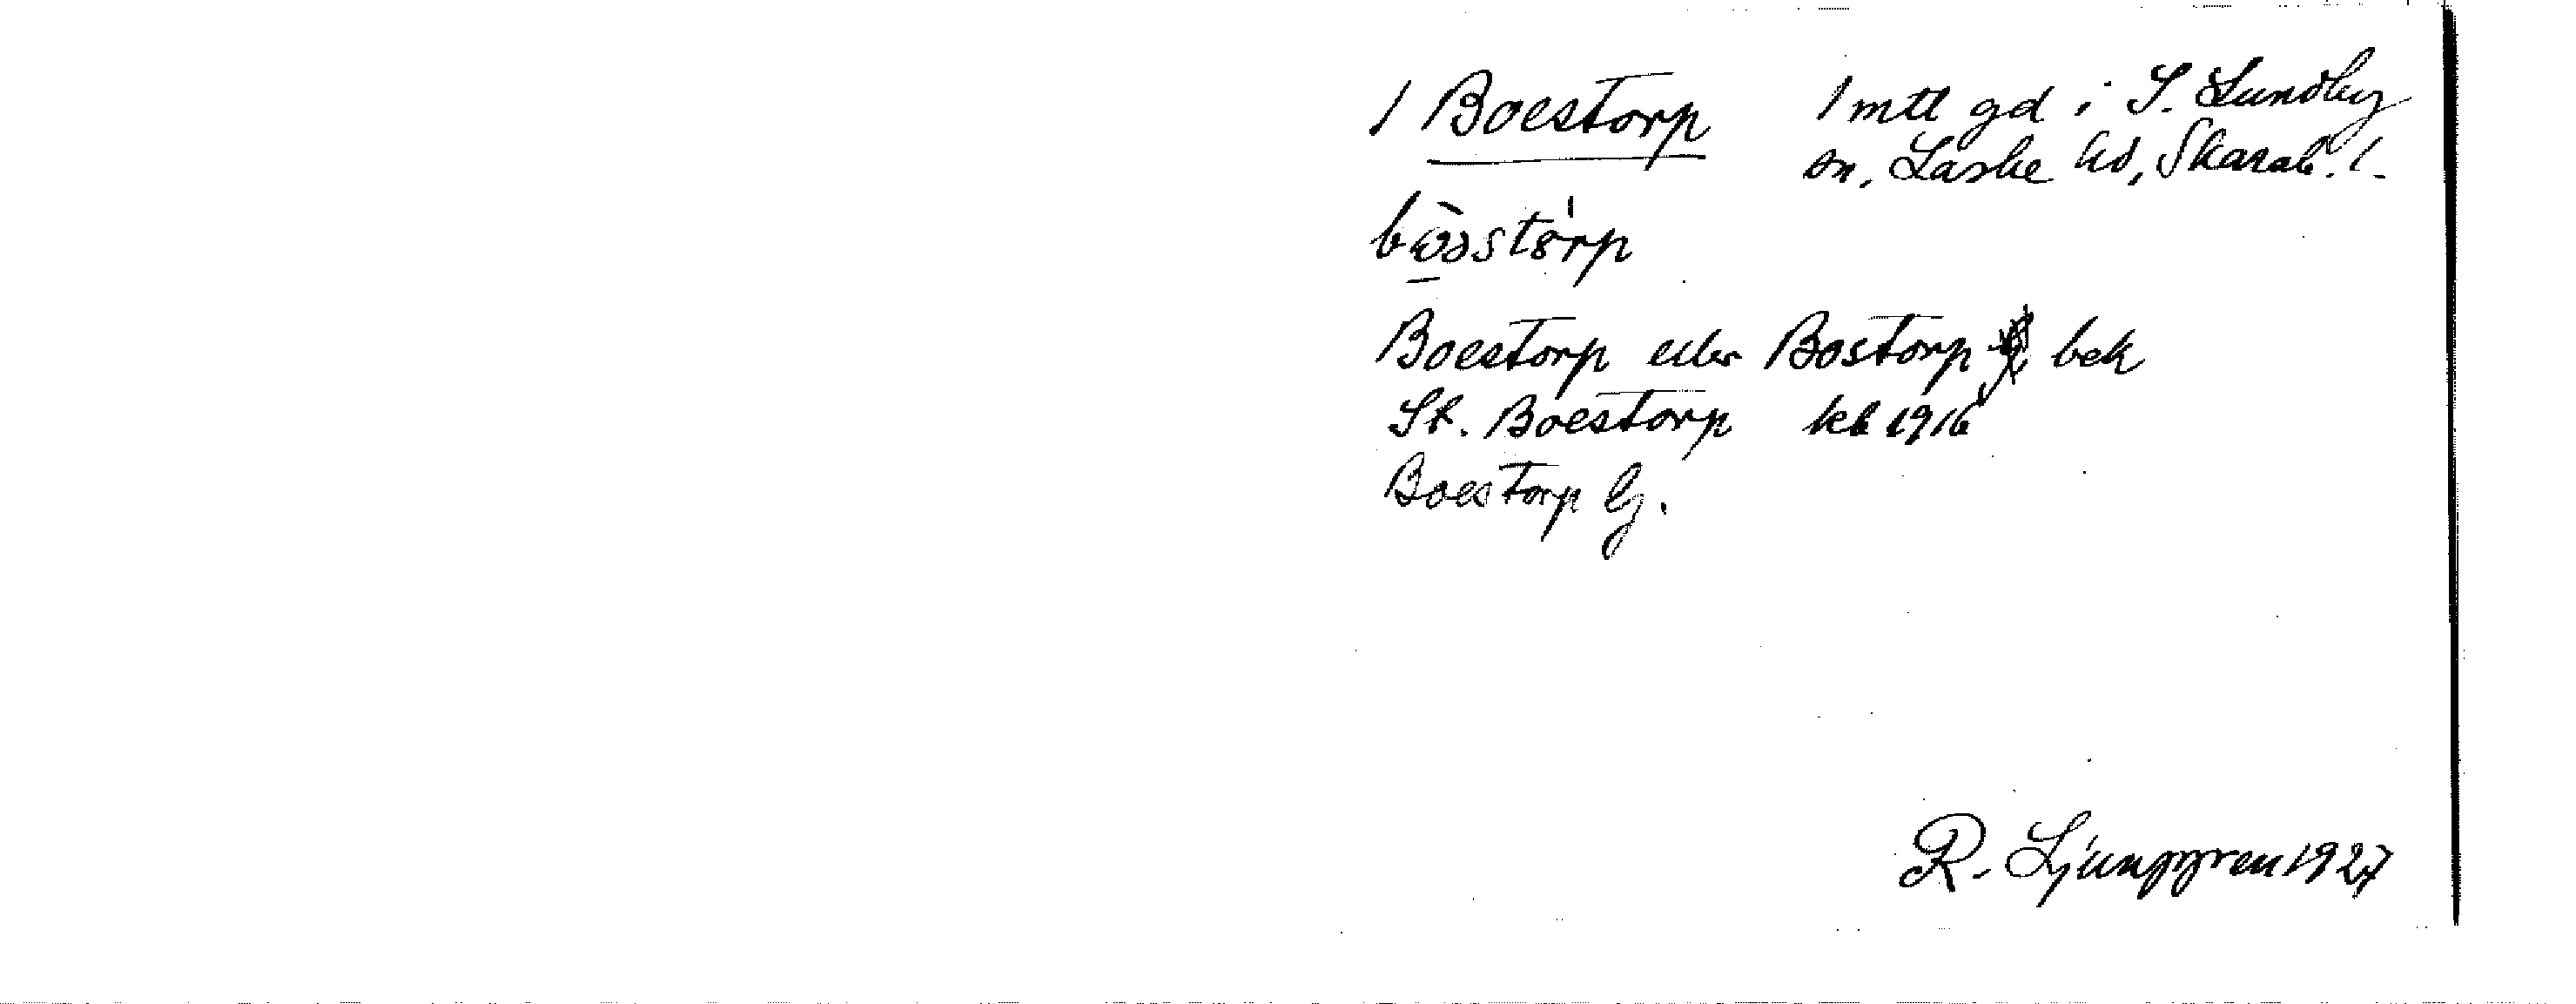 1 Boestorp 1 mtl gd i S. Lundby
sn, Laske hd, Skarab. l.
bòsstòrp
Boestorp eller Bostorp bek
St. Boestorp kb 1916
Boestorp Gj.
R. Ljunggren 1927